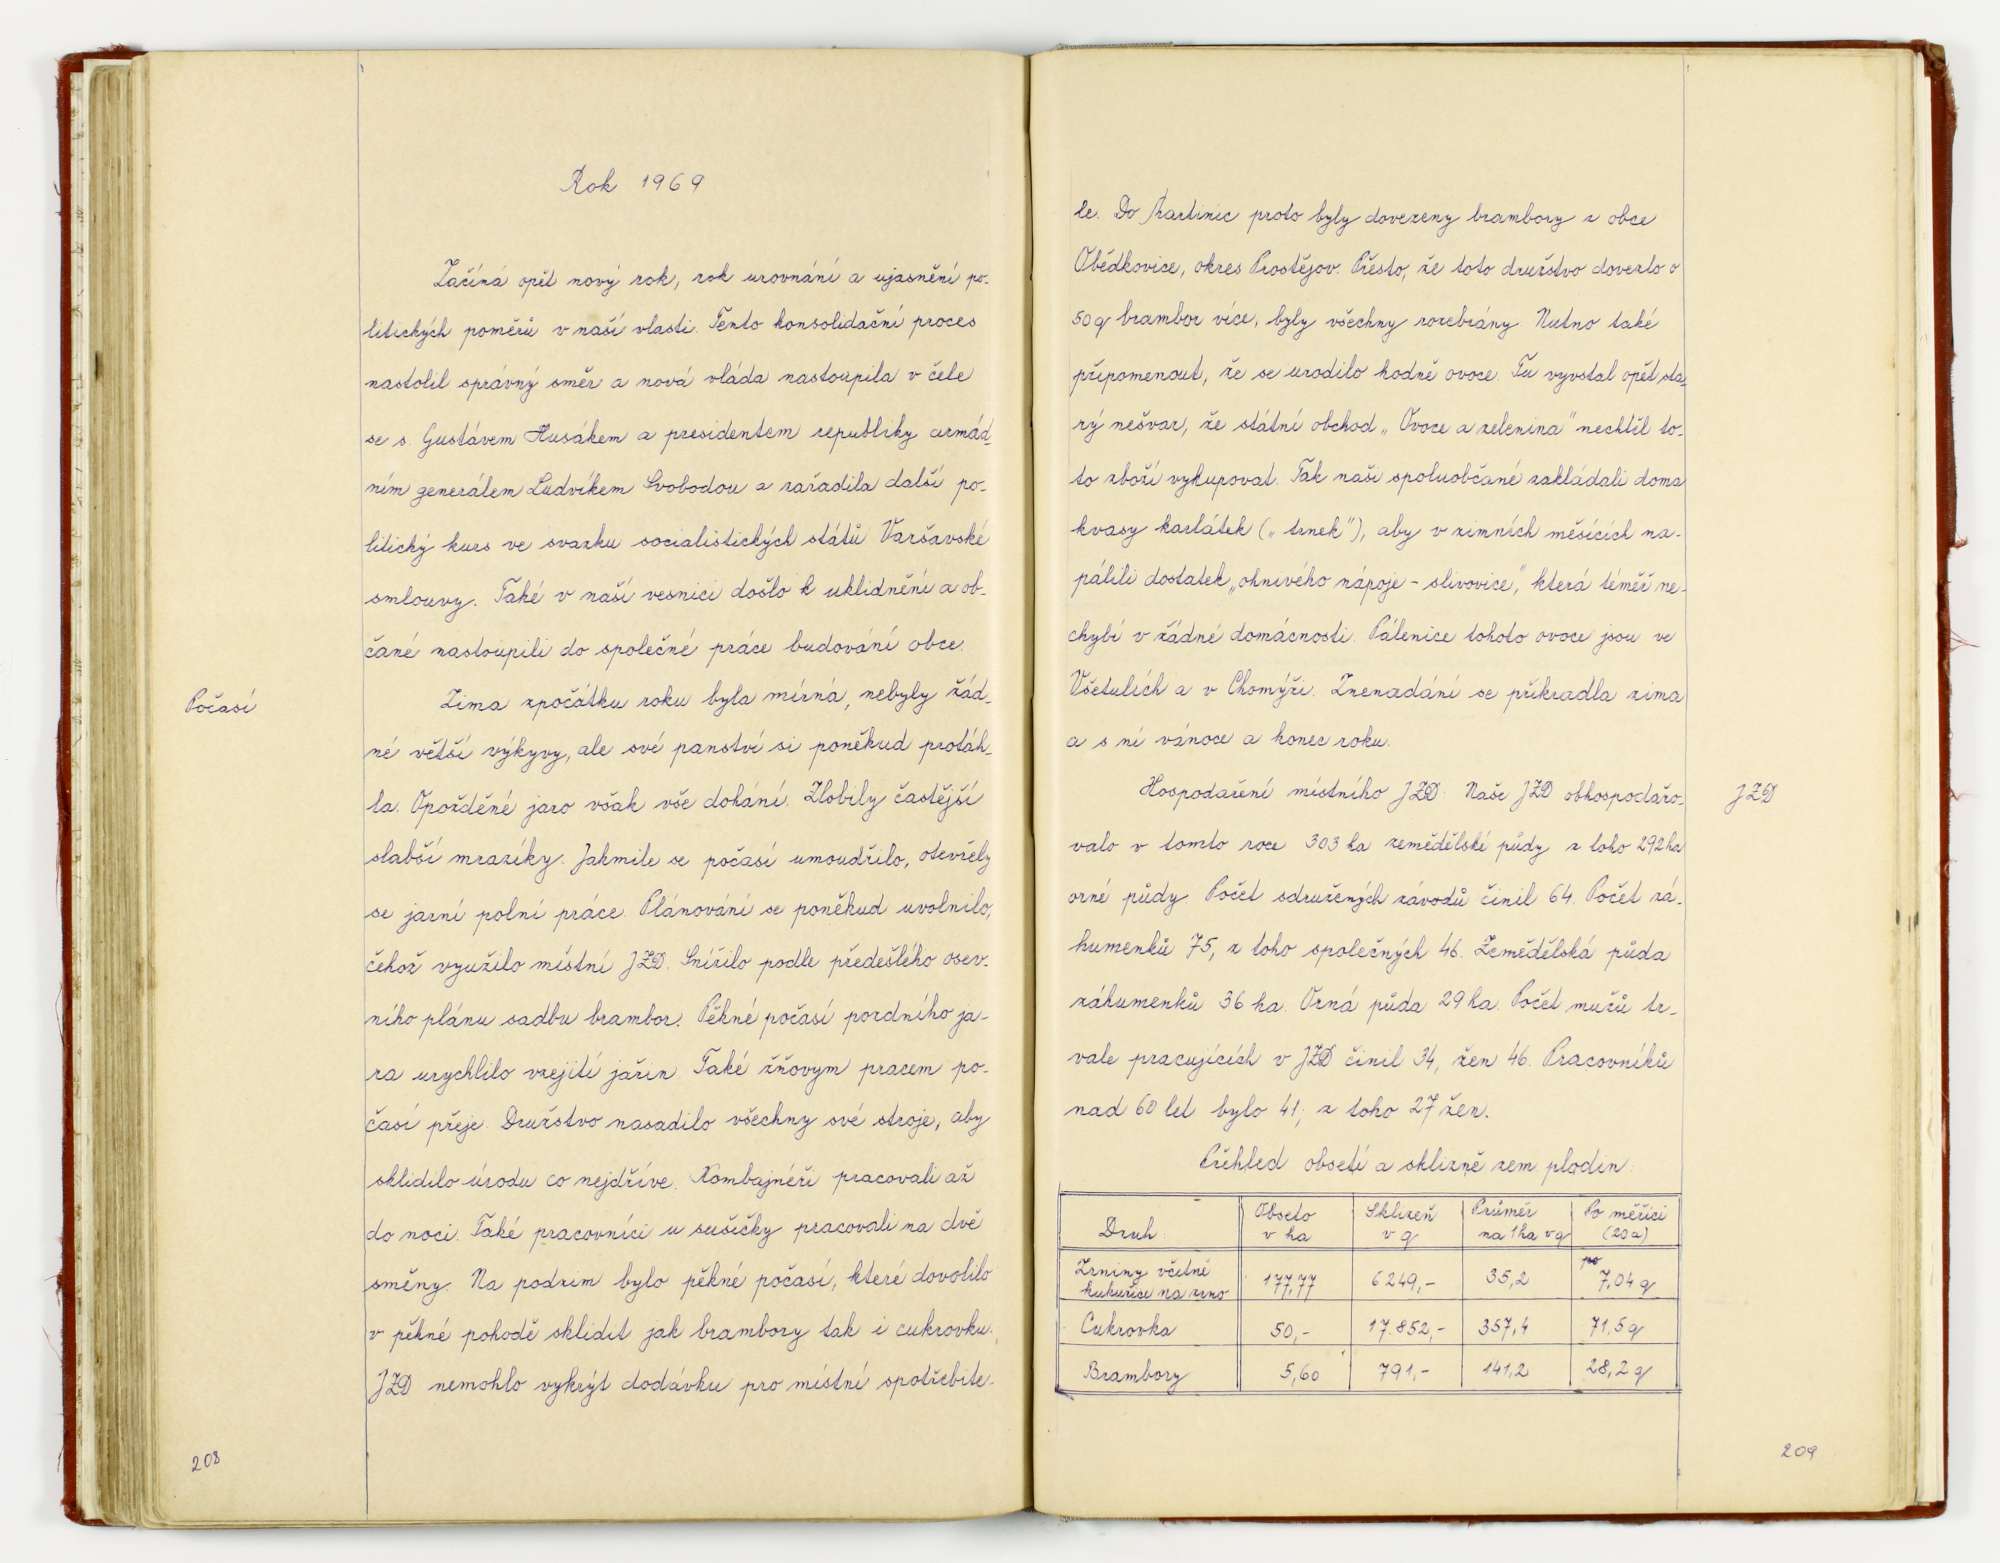 Rok 1969
Začíná opět nový rok, rok urovnání a ujasnění po-
litických poměrů v naší vlasti. Tento konsolidační proces
nastolil správný směr a nová vláda nastoupila v čele
se s. Gustávem Husákem a presidentem republiky armád-
ním generálem Ludvíkem Svobodou a zařadila další po-
litický kurs ve svazku socialistických států Varšavské
smlouvy. Také v naší vesnici došlo k uklidnění a ob-
čané nastoupili do společné práce budování obce.
Počasí
Zima zpočátku roku byla mírná, nebyly žád-
né větší výkyvy, ale své panství si poněkud protáh-
la. Opožděné jaro však vše dohání. Zlobily častější
slabší mrazíky. Jakmile se počasí umoudřilo, otevřely
se jarní polní práce. Plánování se poněkud uvolnilo,
čehož využilo místní JZD. Snížilo podle předešlého osev-
ního plánu sadbu brambor. Pěkné počasí pozdního ja-
ra urychlilo vzejití jařin. Také žňovym pracem po-
časí přeje. Družstvo nasadilo všechny své stroje, aby
sklidilo úrodu co nejdříve. Kombajnéři pracovali až
do noci. Také pracovníci u sušičky pracovali na dvě
směny. Na podzim bylo pěkné počasí, které dovolilo
v pěkné pohodě sklidit jak brambory tak i cukrovku.
JZD nemohlo vykrýt dodávku pro místní spotřebite-
208
le. Do Martinic proto byly dovezeny brambory z obce
Obědkovice, okres Prostějov. Přesto, že toto družstvo dovezlo o
50 q brambor více, byly všechny rozebrány. Nutno také
připomenout, že se urodilo hodně ovoce. Tu vyvstal opět sta-
rý nešvar, že státní obchod „Ovoce a zelenina" nechtěl to-
to zboží vykupovat. Tak naši spoluobčané zakládali doma
kvasy karlátek („trnek"), aby v zimních měsících na-
pálili dostatek „ohnivého nápoje - slivovice," která téměř ne-
chybí v žádné domácnosti. Pálenice tohoto ovoce jsou ve
Všetulích a v Chomýži. Znenadání se přikradla zima
a s ní vánoce a konec roku.
Hospodaření místního JZD: Naše JZD obhospodařo-
JZD
valo v tomto roce 303 ha zemědělské půdy z toho 292 ha
orné půdy. Počet sdružených závodů činil 64. Počet zá-
humenků 75, z toho společných 46. Zemědělská půda
záhumenků 36 ha. Orná půda 29 ha. Počet mužů tr-
vale pracujících v JZD činil 34, žen 46. Pracovníků
nad 60 let bylo 41, z toho 27 žen.
Přehled obsetí a sklizně zem. plodin:
Druh: Obseto v ha Sklizeň v q Průměr na 1 ha v q Po měřici (20 a)
Zrniny včetně kukuřice na zrno 177,77 6249,- 35,2 po 7,04 q
Cukrovka 50,- 17.852,- 357,4 71,5 q
Brambory 5,60 791,- 141,2 28,2 q
209